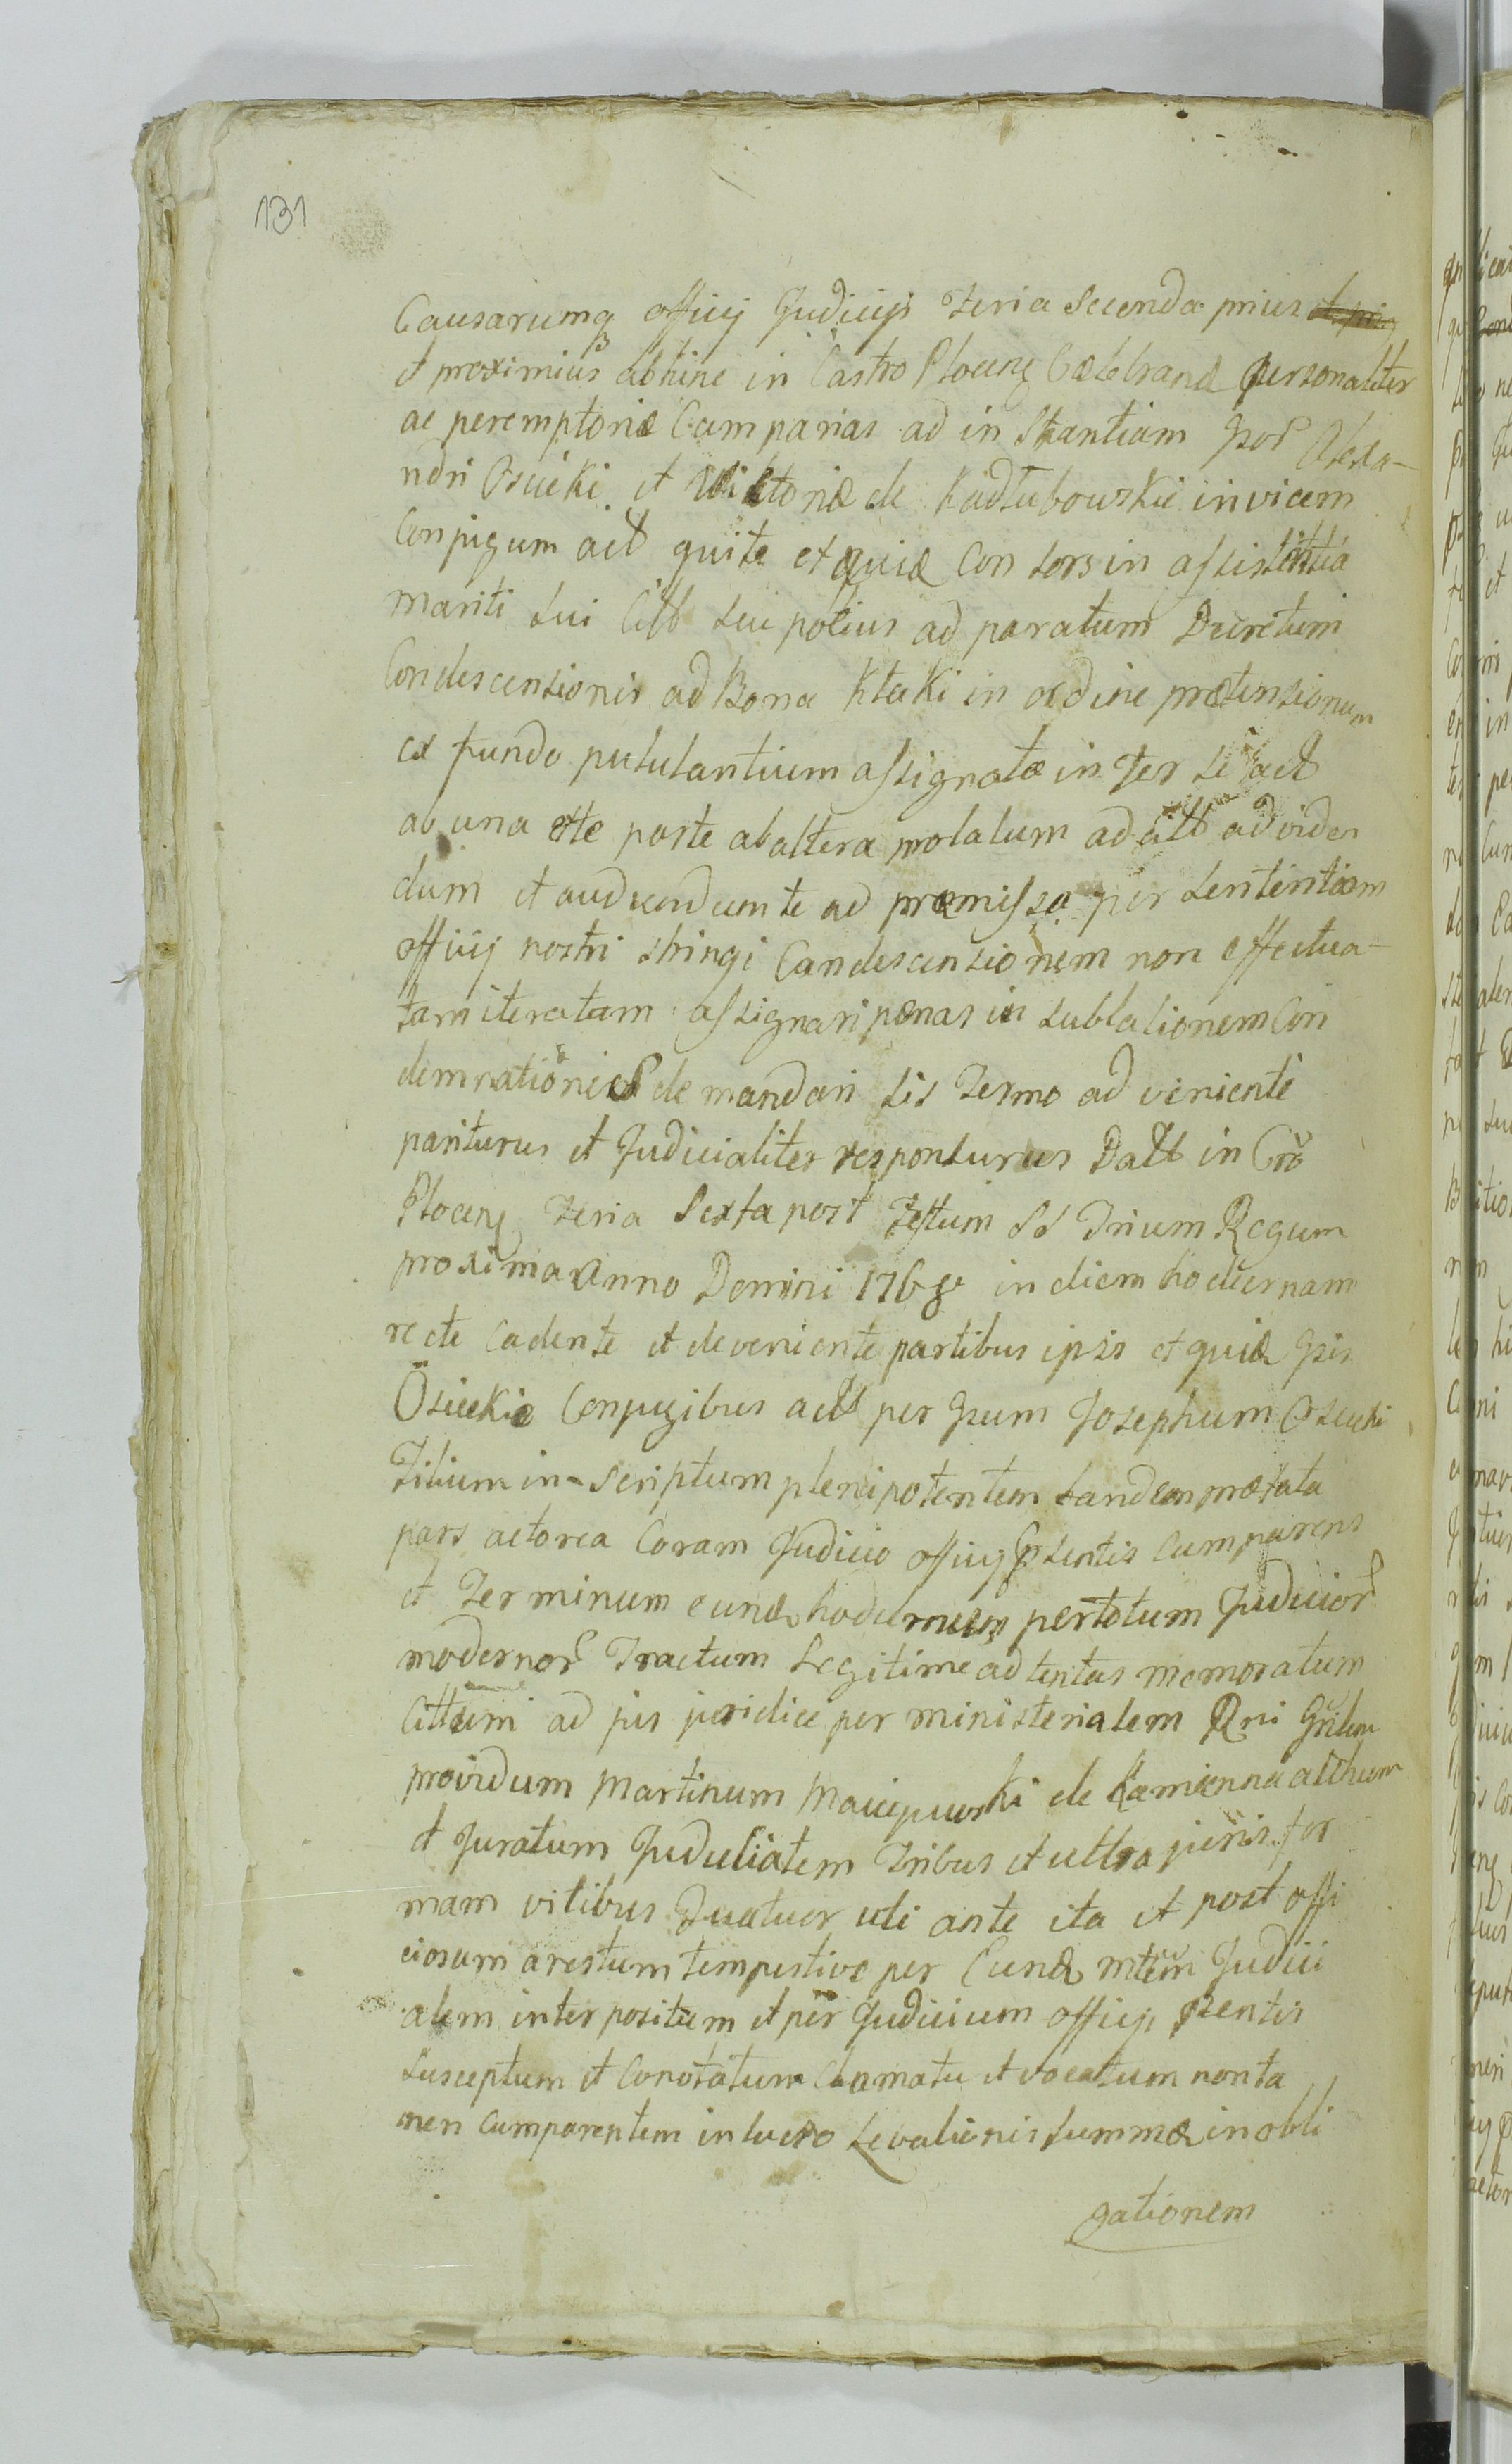 131
Causarumq officij Judicijs Feria Secunda prius
et proximius abhinc in Castro Plocen Caelebrand personaliter
ac peremptorie Campareas ad in Stantiam Gsor Alexa-
ndri Osiecki et Wiktoriae de Kadłubowskie invicem
Conjugum act quite et quidae Con sors in assistentia
mariti sui Citt seu potius ad paratum Decretum
Condescensionis ad Bona Ktaki in ordine praetensionum
ex fundo pululantium assignatae in Ter se act
ab una et te parte ab altera prolatum ad citt ad viden
dum et audiendum te ad praemissa per sententiam
officij nostri stringi Candescensionem non effectua-
tam iteratam assignari paenas in sublationem Con
demnationis demandari sis Termo ad veniente
pariturus et Judicialiter responsurus Datt in Cro
Plocen Feria Sexta post Festum SS Trium Regum
proxima Anno Domini 1768 in diem hodiernam
recte cadente et deveniente partibus ipsis et quidae Gsis
Osieckie Conjugibus act per Gsum Josephum Osiecki
Filium in-scriptum plenipotentem tandem praefata
pars actorea Coram Judicio officij Psentis Cumparens
et Terminum eund hodiernum per totum Judicior
modernor Tractum Legitime ad tentus memoratum
Cittum ad jus juridice per ministerialem Rni Gnlem
providum Martinum Maciejewski de Kamienna atthum
et Juratum Judicialem Tribus et ultra juris for
mam vitibus Quatuor uti ante ita et post offi
ciosum arestum tempestive per Eund mtem Judici
alem inter positum et per Judicium officij Psentis
susceptum et Conotatum clamatu et vocatum non ta
men cumparentem in lucro Levationis summae in obli
gationem